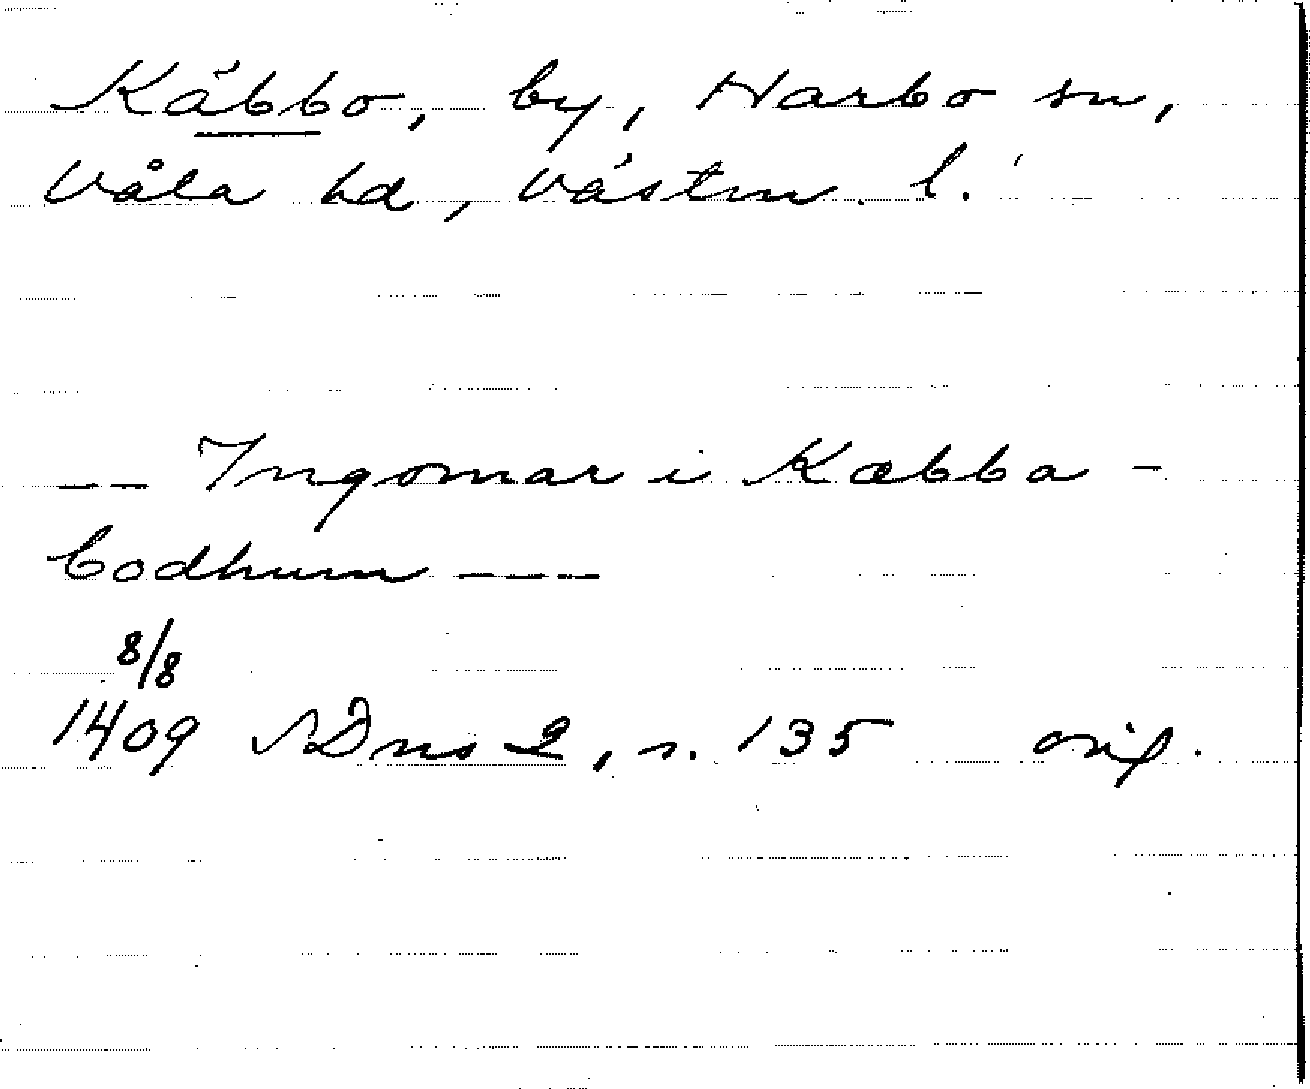 Käbbo, by, Harbo sn,
Våla hd, Västm. l.
-- Ingomar i Kæbba-
bodhum ---
8/8
1409 SDns 2, s. 135 orig.